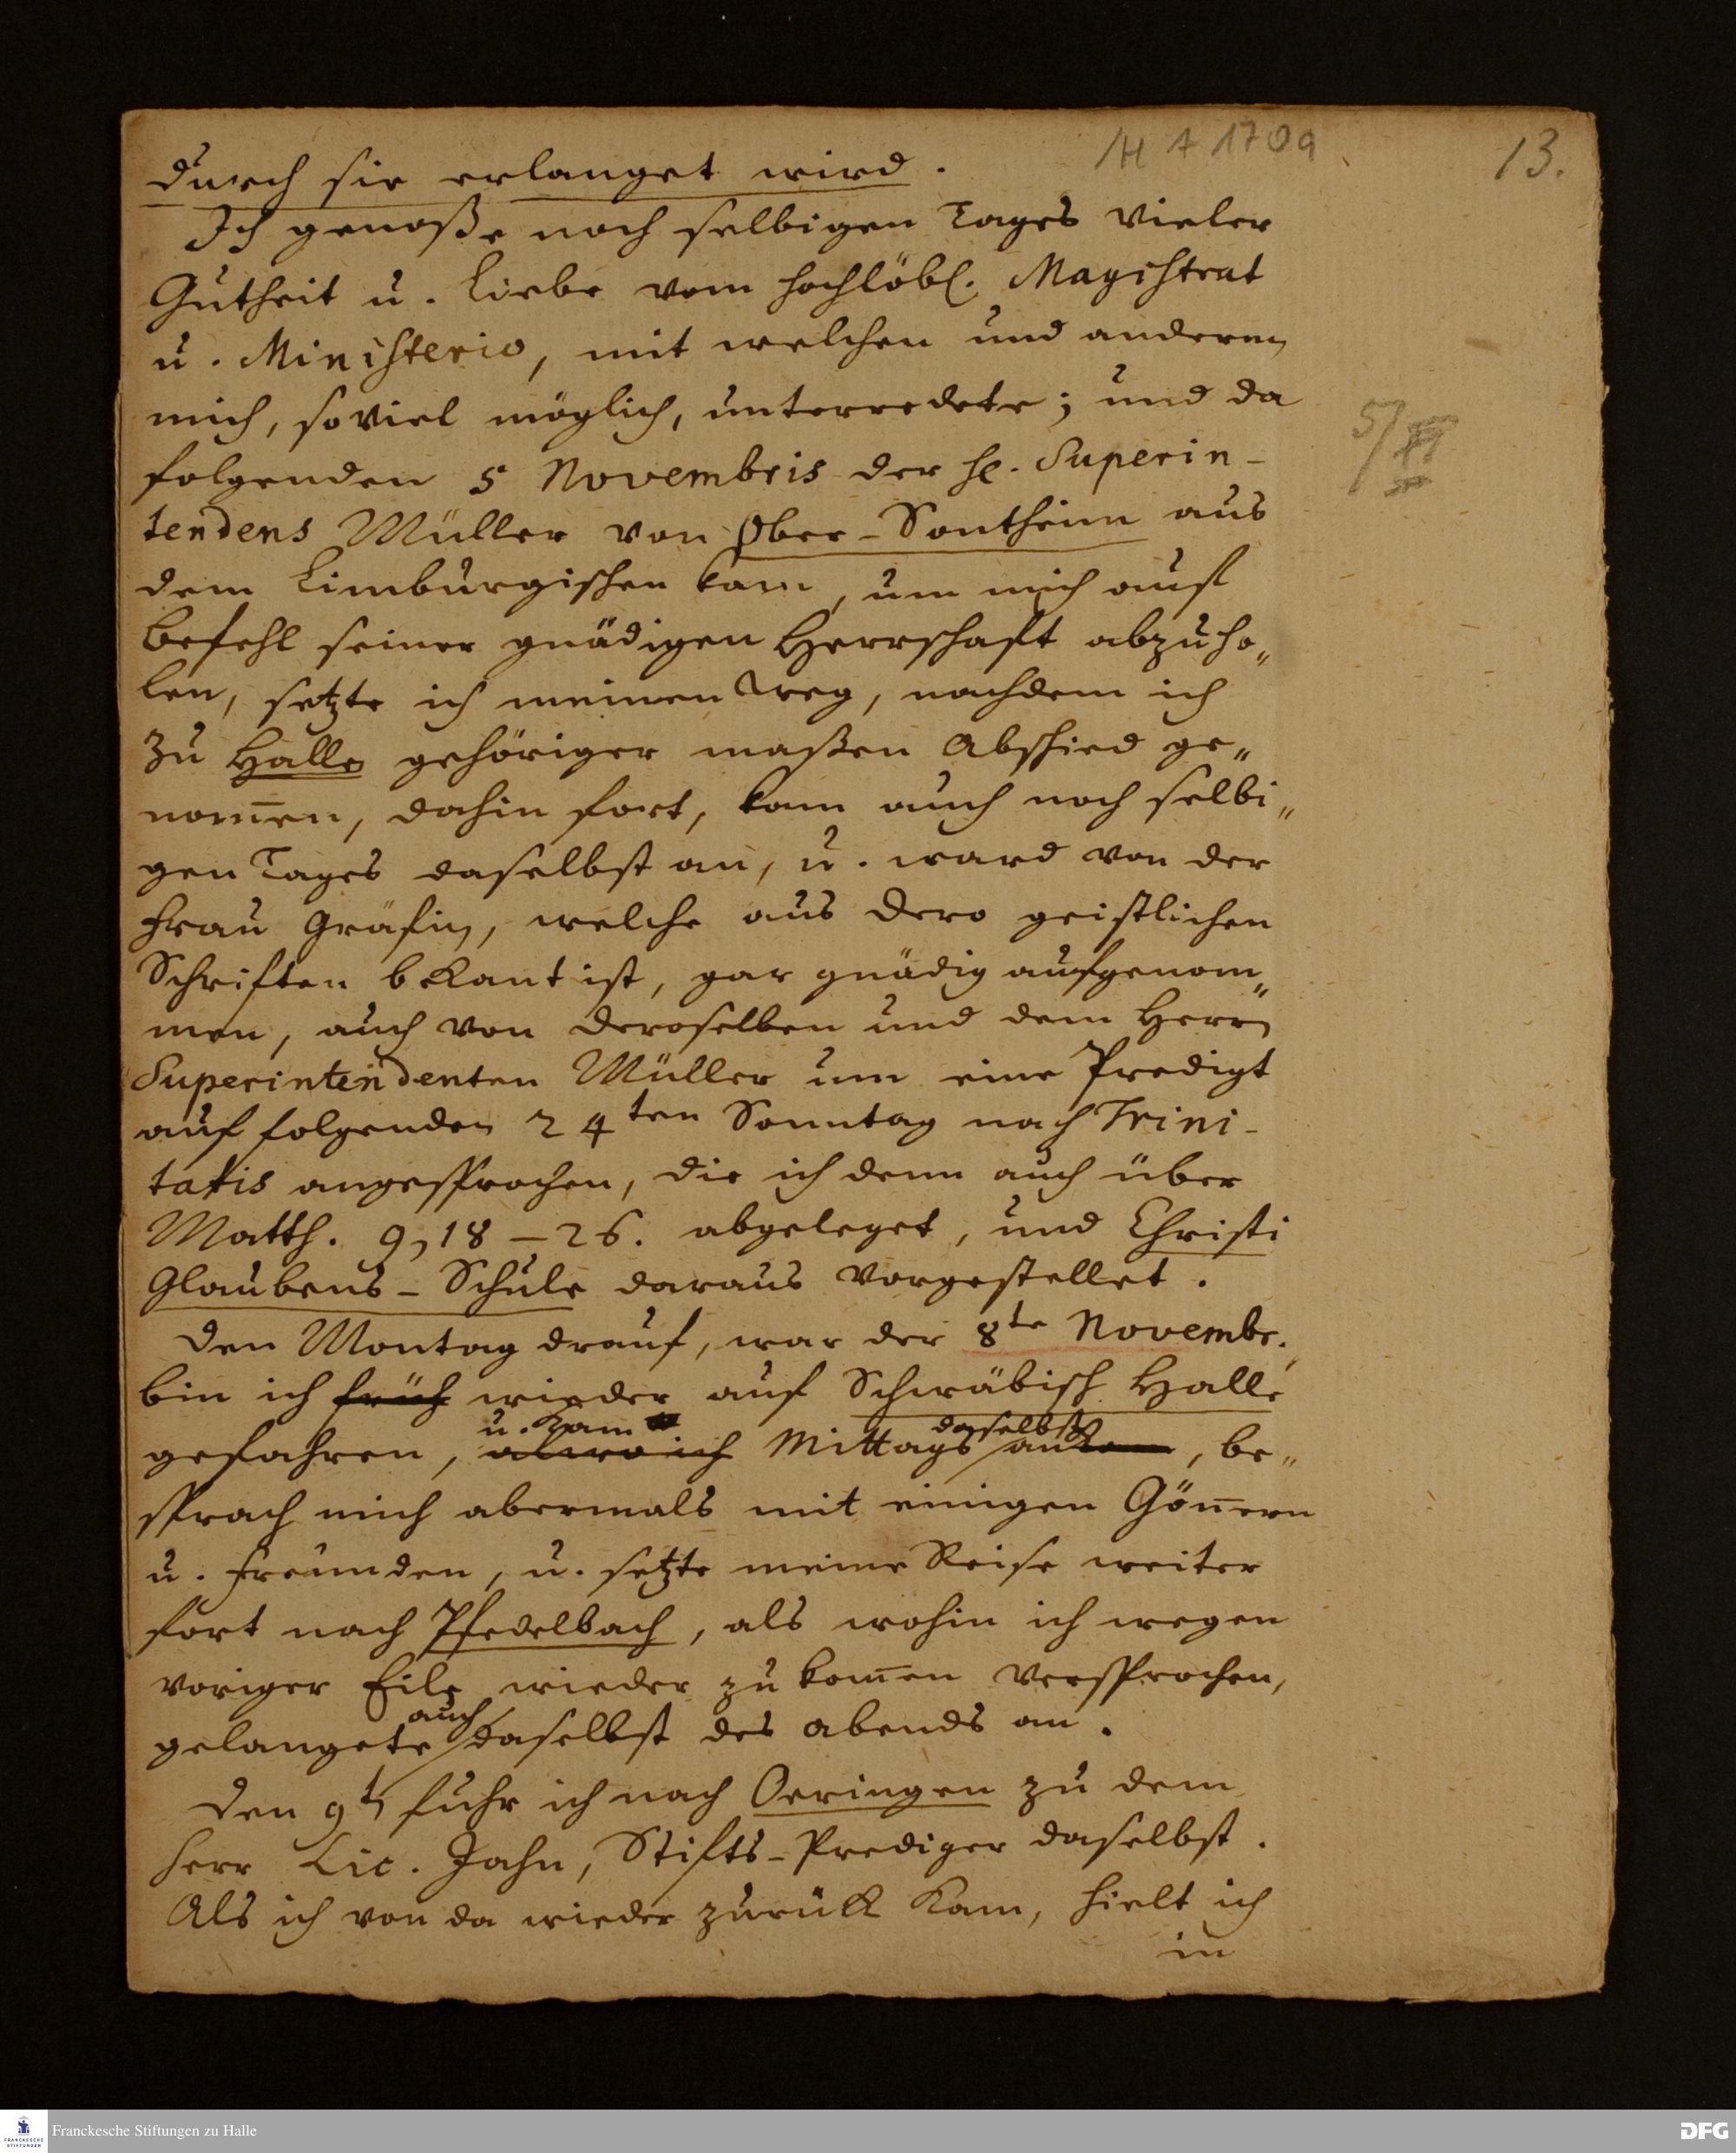 /H A 1709
13.
durch sie erlanget wird.
Ich genoße noch selbigen Tages vieler
Gutheit u. Liebe vom hochlöbl. Magistrat
u. Ministerio, mit welchen und anderen
mich, soviel möglich, unterredete; und da
folgenden 5 Novembris der H. Superin-
tendens Müller von Ober-Sontheim aus
dem Limburgischen kam, um mich auf
Befehl seiner gnädigen Herrschaft abzuho„
len, setzte ich meinen Weg, nachdem ich
zu Halle gehöriger maßen Abschied ge„
nom̄en, dahin fort, kam auch noch selbi„
gen Tages daselbst an, u. ward von der
Frau Gräfin, welche aus dero geistlichen
Schriften bekant ist, gar gnädig aufgenom„
men, auch von deroselben und dem Herrn
Superintendenten Müller um eine Predigt
auf folgenden 24ten Sonntag nach Trini-
tatis angesprochen, die ich denn auch über
Matth. 9,18-26. abgeleget, und Christi
Glaubens-Schule daraus vorgestellet.
Den Montag drauf, war der 8te Novembr.
bin ich früh wieder auf Schwäbisch Halle
u. kam daselbst
gefahren, alwo ich Mittags ankam, be„
sprach mich abermals mit einigen Gön̄ern
u. Freunden, u. setzte meine Reise weiter
fort nach Pfedelbach, als wohin ich wegen
voriger Eile wieder zu kom̄en versprochen,
auch
gelangete daselbst des abends an.
Den 9t fuhr ich nach Oeringen zu dem
Herr Lic. Jahn, Stifts-Prediger daselbst.
Als ich von da wieder zurük kam, hielt ich
in
Franckesche Stiftungen zu Halle
DFG